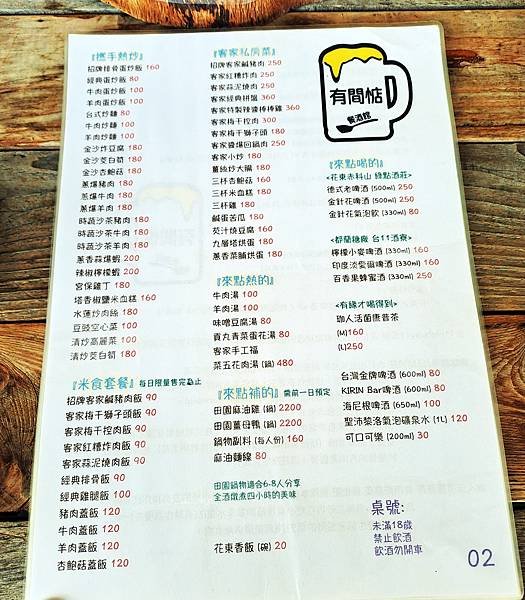 『攜手熱炒』
招牌排骨蛋炒飯 160
經典蛋炒飯 80
牛肉蛋炒飯 100
羊肉蛋炒飯 100
台式炒麵 80
牛肉炒麵 100
羊肉炒麵 100
金沙炸豆腐 180
金沙茭白筍 180
金沙杏鮑菇 180
蔥爆豬肉 180
蔥爆牛肉 180
蔥爆羊肉 180
時蔬沙茶豬肉 180
時蔬沙茶牛肉 180
時蔬沙茶羊肉 180
蔥香蒜爆蝦 200
辣椒檸檬蝦 200
宮保雞丁 180
塔香椒鹽米血糕 160
水蓮炒肉絲 180
豆豉空心菜 100
清炒高麗菜 100
清炒茭白筍 180
『米食套餐』每日限量售完為止
招牌客家鹹豬肉飯 90
客家梅干獅子頭飯 90
客家梅干控肉飯 90
客家紅糟炸肉飯 90
客家蒜泥燒肉飯 90
經典排骨飯 90
經典雞腿飯 100
豬肉蓋飯 120
牛肉蓋飯 120
羊肉蓋飯 120
杏鮑菇蓋飯 120
『客家私房菜』
招牌客家鹹豬肉 250
客家紅糟炸肉 250
客家蒜泥燒肉 250
客家經典拼盤 360
客家特製辣醬棒棒雞 360
客家梅干控肉 300
客家梅干獅子頭 180
客家醬爆回鍋肉 250
客家小炒 180
薑絲炒大腸 180
三杯杏鮑菇 160
三杯米血糕 180
三杯雞 180
鹹蛋苦瓜 180
芡汁燒豆腐 160
九層塔烘蛋 180
蔥香菜脯烘蛋 180
『來點熱的』
牛肉湯 100
羊肉湯 100
味噌豆腐湯 80
貢丸青菜蛋花湯 80
客家手工福
菜五花肉湯 (鍋) 480
『來點補的』需前一日預定
田園麻油雞 (鍋) 2200
田園薑母鴨 (鍋) 2200
鍋物副料 (每人份) 160
麻油麵線 80
田園鍋物適合6-8人分享
全酒燉煮四小時的美味
花東香飯 (碗) 20
有間惦
餐酒館
『來點喝的』
<花東赤科山 綠點酒莊>
德式老啤酒 (500ml) 250
金針花啤酒 (500ml) 250
金針花氣泡飲 (330ml) 80
<都蘭糖廠 台11酒寮>
檸檬小麥啤酒 (330ml) 160
印度淡愛爾啤酒 (330ml) 160
百香果蜂蜜酒 (330ml) 250
<有緣才喝得到>
珈人活菌康普茶
(M)160
(L)250
台灣金牌啤酒 (600ml) 80
KIRIN Bar啤酒 (600ml) 80
海尼根啤酒 (650ml) 100
聖沛黎洛氣泡礦泉水 (1L) 120
可口可樂 (200ml) 30
桌號:
未滿18歲
禁止飲酒
飲酒勿開車
02